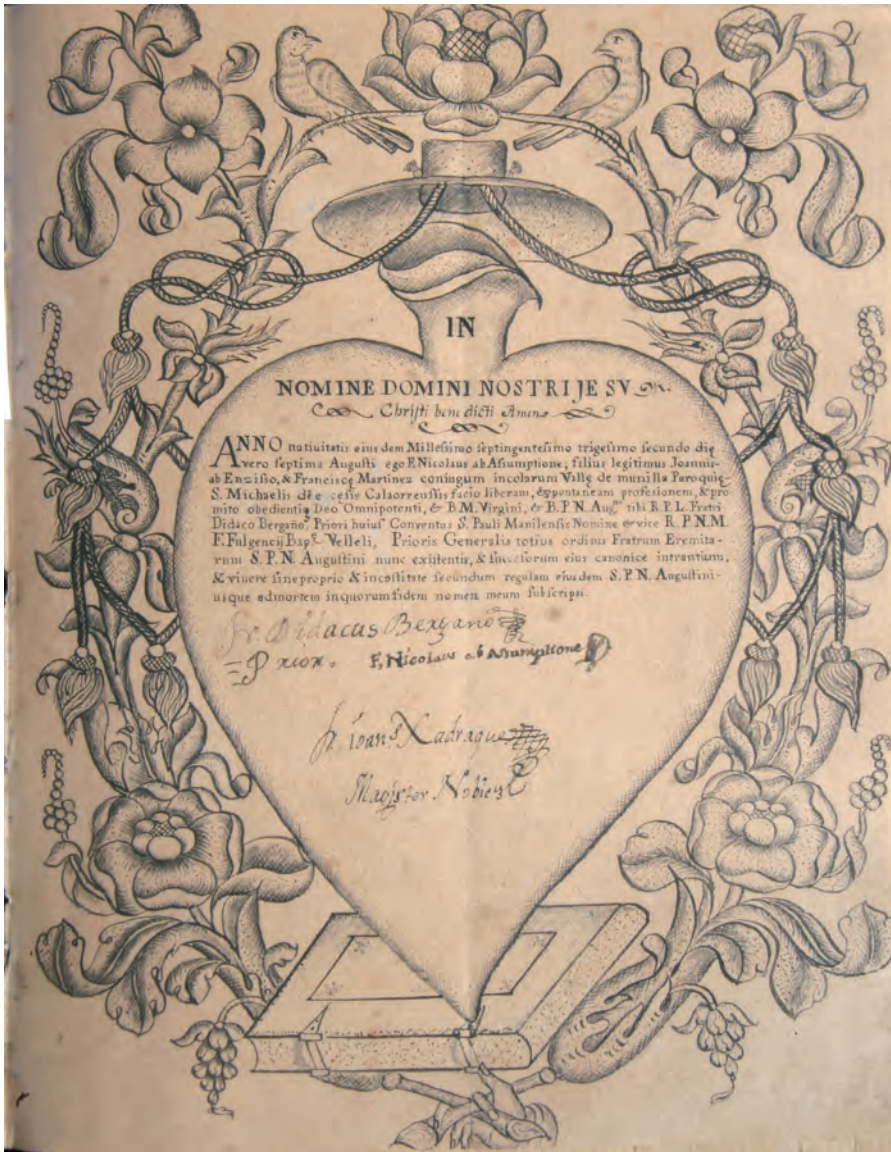 IN
NOMINE DOMINI NOSTRI JE SV
Christi benedicti Amen
ANNO natiuitatis eiusdem Millessimo septingentesimo trigesimo secundo die
vero septima Augusti ego F. Nicolaus ab Assumptione; filius legitimus Joannis
ab Enzisso, & Francisce Martinez coniugum incolarum Ville de munilla Paroquie
S. Michaelis diecesis Calaorreussis facio liberam, & spontaneam profesionem, & pro
mito obedientia Deo Omnipotenti, & B. M. Virgini, & B. P. N. Aug. tibi R. P. L. Fratri
Didaco Bergano, Priori huius Conventus S. Pauli Manilensis Nomine & vice R. P. N. M.
F. Fulgencij Bap. Velleli, Prioris Generalis totius ordinis Fratrum Eremita-
rum S. P. N. Augustini nunc existentis, & succesorum eius canonice intrantium,
& viuere sine proprio & in castitate secundum regulam eiusdem S. P. N. Augustini
usque ad mortem in quorum fidem nomen meum subscripsi.
Fr. Didacus Bergano
Prior. F, Nicolaus ab Assumptione
fr. Joan.s Xadraque
Magister Nobicz